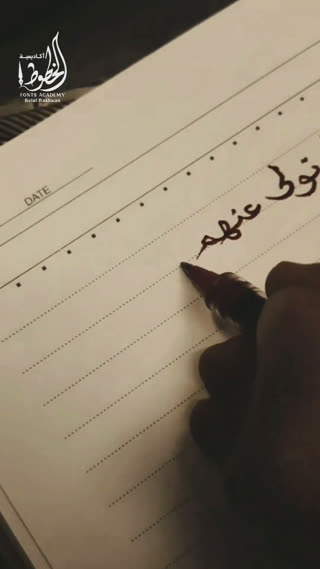 أكاديمية
الخطوط
FONTS ACADEMY
Belal Radwan
DATE
تولى عنهم